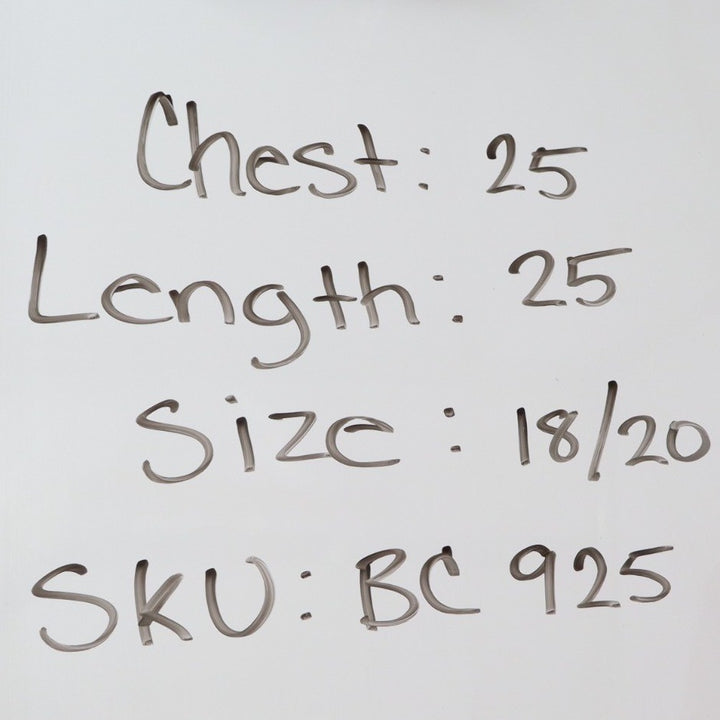 Chest: 25
Length: 25
Size: 18/20
SKU: BC 925